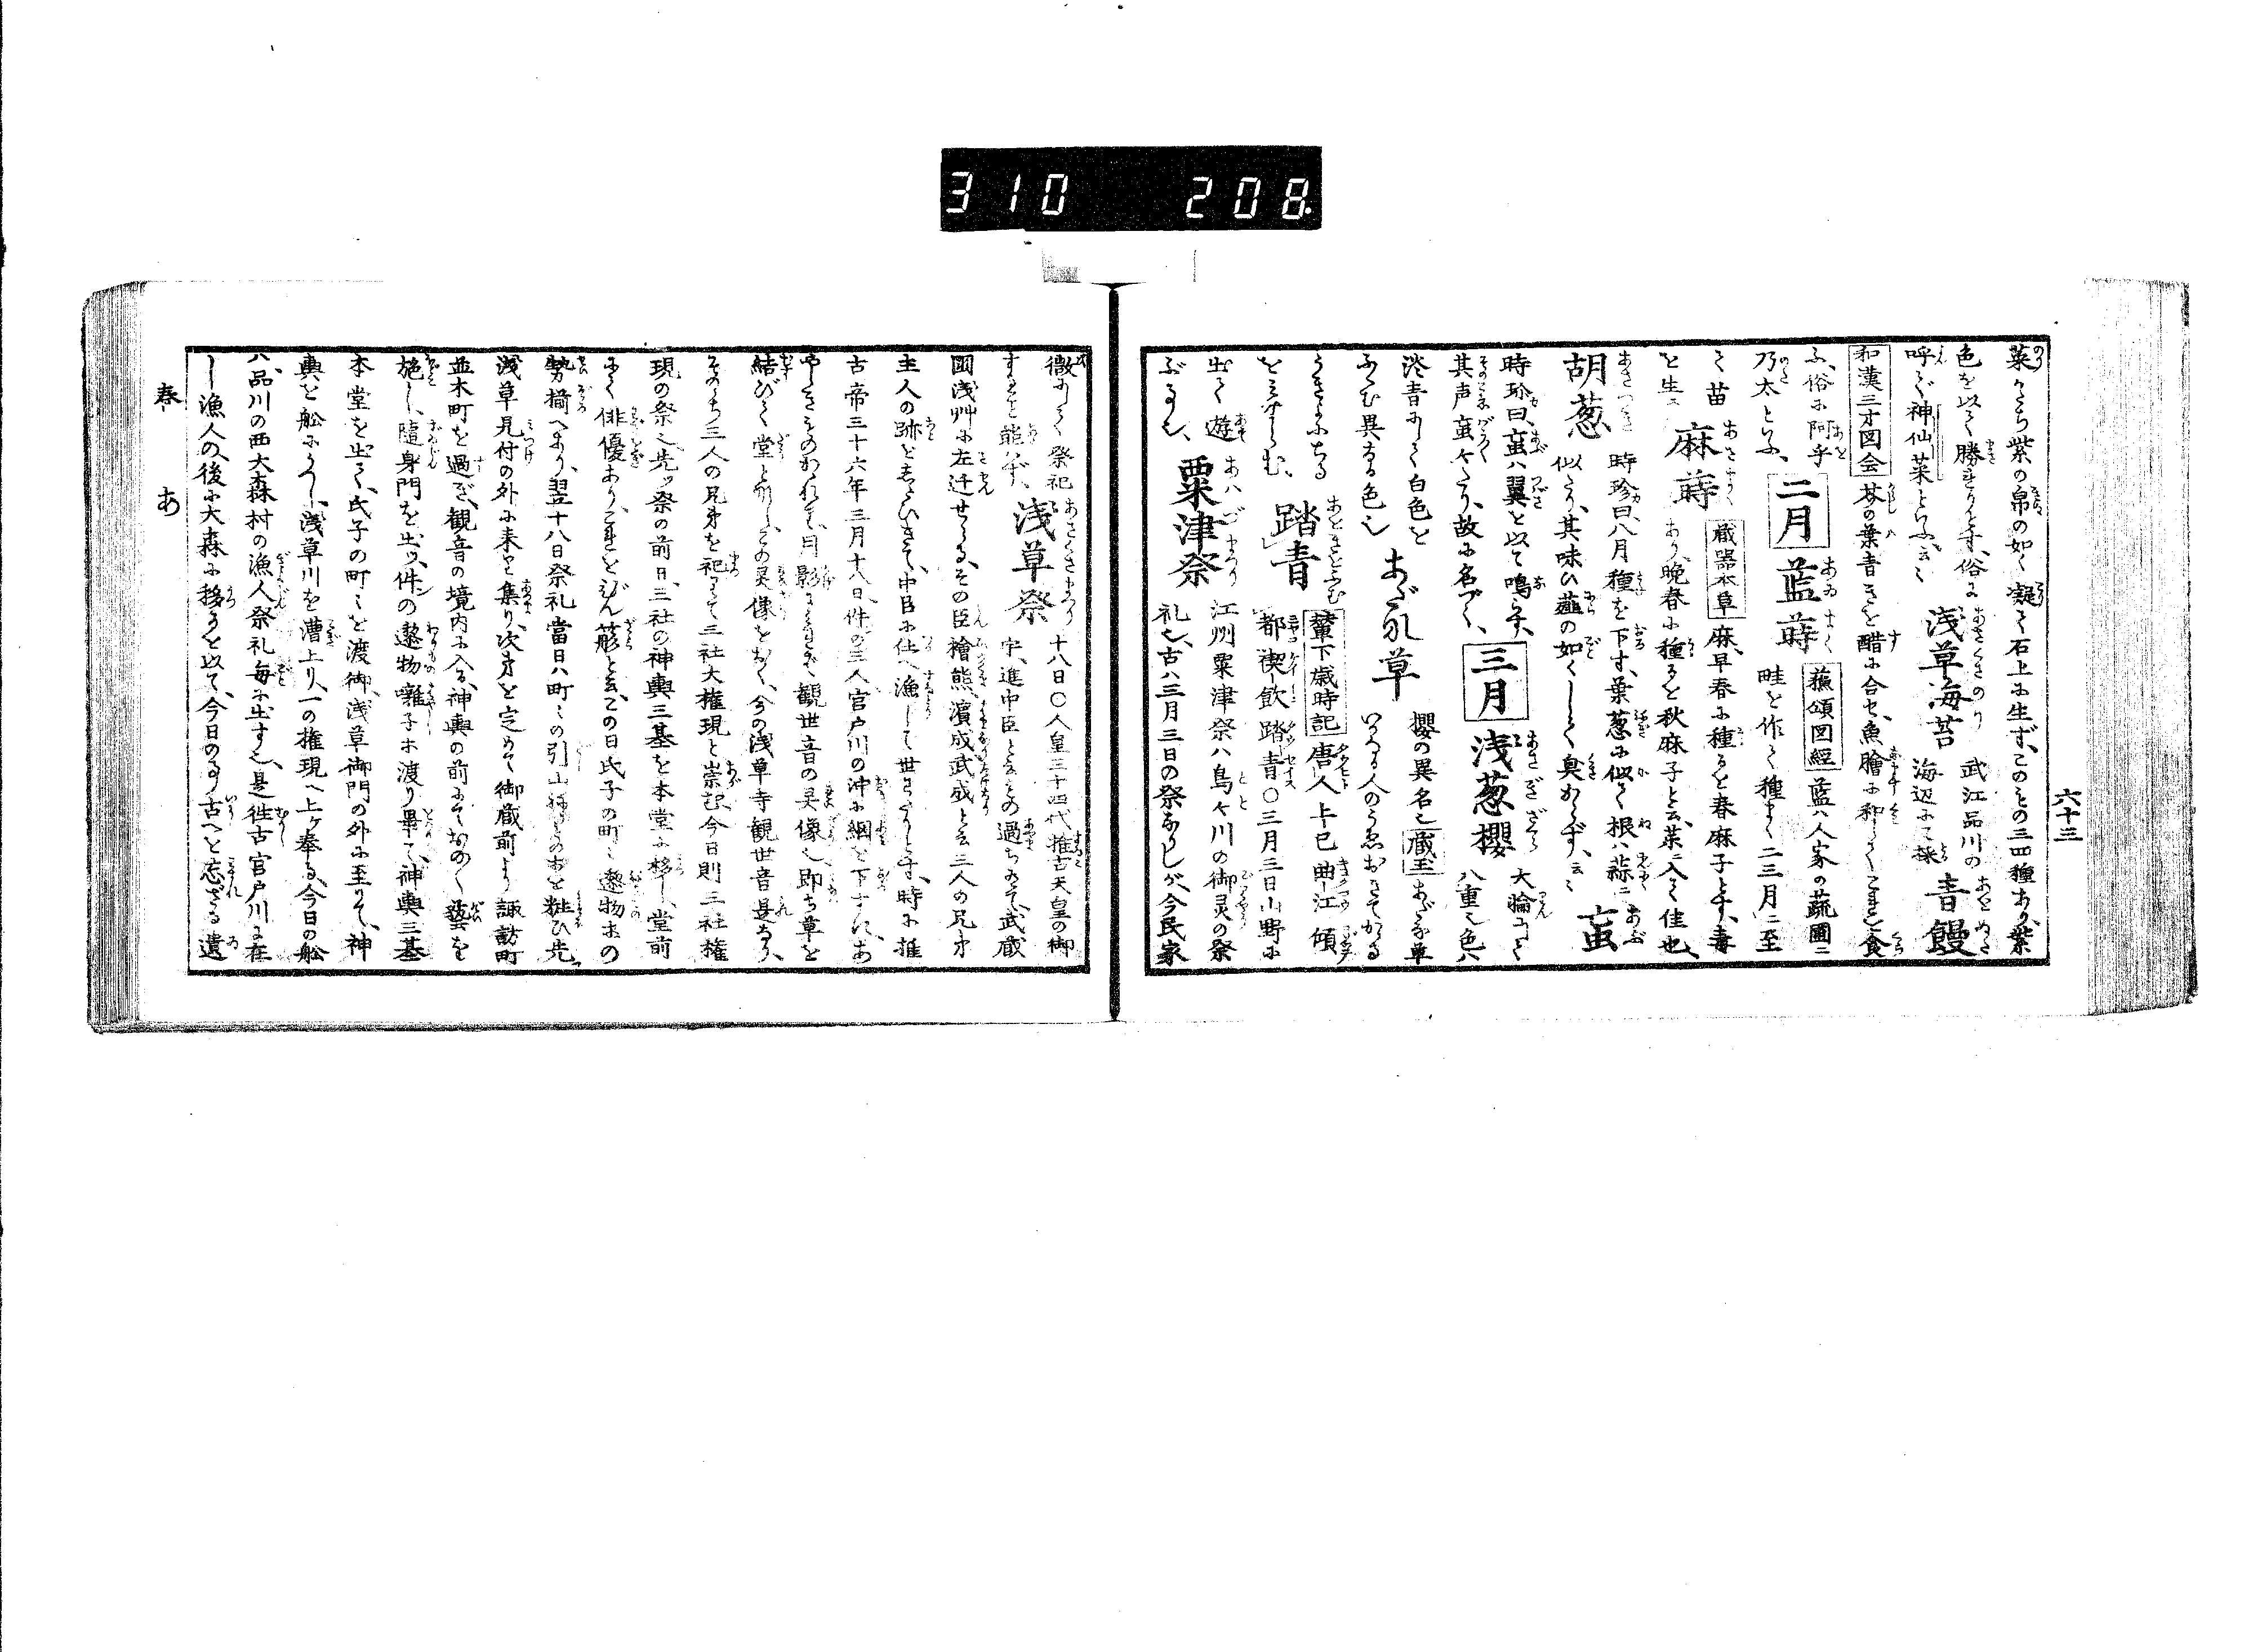 310 208.
六十三
菜 紫の帛の如く凝て石上に生ず、このもの三四種あり、紫
色を以て勝れりとす、俗に
浅草海苔 武江品川の
呼で神仙菜といふ、云々 海辺にて採
青饅
和漢三才図会 芥の葉青きを醋に合セ、魚膾に和してこれを食
ふ、俗に阿乎
乃太といふ、
二月
藍蒔 蘓頌図経 藍ハ人家の蔬圃ニ
畦を作て種まく二三月ニ至
て苗
を生ス
麻蒔 蔵器本草 麻、早春に種るを春麻子とす、毒
あり、晩春に種るを秋麻子と云、菜ニ入て佳也、
胡葱 時珍曰、八月種を下す、葉葱に似て根ハ蒜ニ
似たり、其味ひ薤の如くしてく臭からず、云々
蝱
時珍曰、蝱ハ翼を以て鳴らす、
其声蝱々たり、故に名づく、
三月
浅葱櫻 大輪にして
八重也色ハ
淡青にして白色を
ふくむ異なる色也
あだな草 櫻の異名也 蔵玉 あだな草
いかなる人のうゑおきてかかる
うきよにちる
をみすらむ、
踏青 輦下歳時記 唐人上巳曲江傾
都禊飲踏青〇三月三日山野に
出て遊
ぶ事也、
粟津祭 江州粟津祭ハ鳥ケ川の御灵の祭
礼也、古ハ三月三日の祭なりしが、今民家
微にして祭祀
することを能ハず、
浅草祭 十八日〇人皇三十四代推古天皇の御
宇、進中臣と云もの過ちありて、武蔵
國浅艸に左迁せらる、その臣檜熊、濱成武成と云三人の兄弟
主人の跡をしたひきて、中臣に仕へ漁して世をわたりとす、時に推
古帝三十六年三月十八日件の三人宮戸川の沖に網を下すに、あ
やしきものかかれるを、月影にミれば、観世音の灵像也、即ち草を
結びて堂と形し、この灵像をおく、今の浅草寺観世音是なり、
そののち三人の兄弟を祀りて三社大権現と崇む、今日則三社権
現の祭也、先ツ祭の前日、三社の神輿三基を本堂に移し、堂前
にて俳優あり、これをびんざゝらと云、この日氏子の町々邀物等の
勢揃へあり、翌十八日祭礼當日ハ町々の引山 のおを粧ひ先ツ
浅草見付の外に来り集り、次第を定めて御蔵前より諏訪町
並木町を過ぎ、観音の境内に入る、神輿の前にておのく藝を
施し、随身門を出ツ、件の邀物囃子等渡り畢て、神輿三基
本堂を出て、氏子の町々を渡御、浅草御門の外に至りて、神
輿を舩にうつし、浅草川を漕上り、一の権現へ上ケ奉る、今日の舩
ハ、品川の西大森村の漁人祭礼毎に出す也、是往古宮戸川に在
し漁人の、後に大森に移るを以て、今日の事古へを忘ざる遺
春
あ